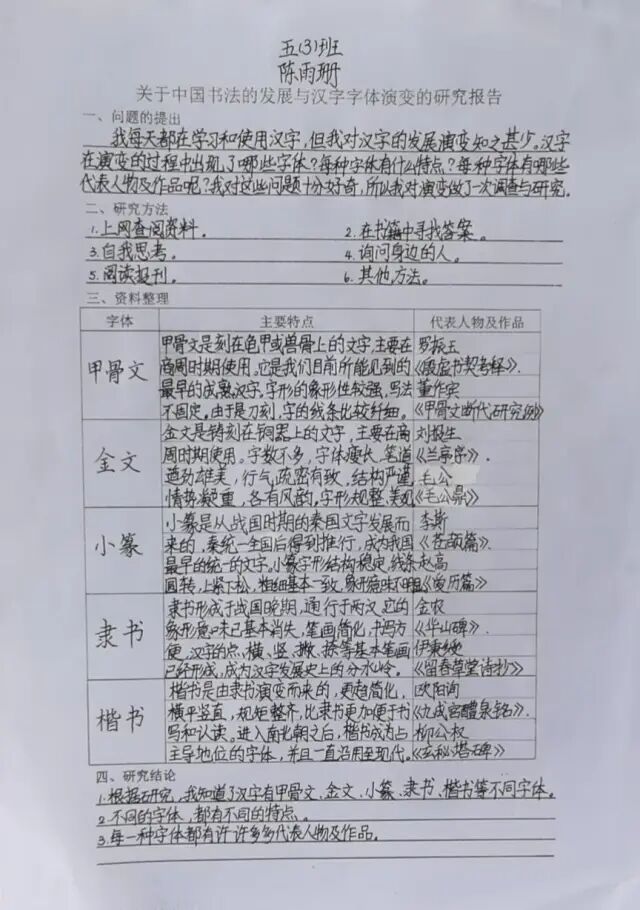 五(3)班
陈雨珊
关于中国书法的发展与汉字字体演变的研究报告
一、问题的提出
我每天都在学习和使用汉字,但我对汉字的发展演变知之甚少。汉字
在演变的过程中出现了哪些字体?每种字体有什么特点?每种字体有哪些
代表人物及作品呢?我对这些问题十分好奇,所以我对演变做了一次调查与研究。
二、研究方法
1.上网查阅资料。 2.在书籍中寻找答案。
3.自我思考。 4.询问身边的人。
5.阅读报刊。 6.其他方法。
三、资料整理
字体 主要特点 代表人物及作品
甲骨文
甲骨文是刻在龟甲或兽骨上的文字,主要在 罗振玉
商周时期使用。它是我们目前所能见到的 《殷虚书契考释》.
最早的成熟汉字。字形的象形性较强,写法 董作宾
不固定。由于是刀刻,字的线条比较纤细。 《甲骨文断代研究例》
金文
金文是铸刻在铜器上的文字,主要在商 刘报生
周时期使用。字数不多,字体瘦长,笔道 《兰亭序》.
遒劲雄美,行气疏密有致,结构严谨, 毛公
情势凝重,各有风韵,字形规整、美观 《毛公鼎》
小篆
小篆是从战国时期的秦国文字发展而 李斯
来的,秦统一全国后得到推行,成为我国 《苍颉篇》.
最早的统一的文字。小篆字形结构稳定,线条 赵高
圆转,上紧下松,粗细基本一致,象形意味不明显 《爰历篇》
隶书
隶书形成于战国晚期,通行于两汉,它的 金农
象形意味已基本消失,笔画简化,书写方 《华山碑》.
便,汉字的点、横、竖、撇、捺等基本笔画 伊秉绶
已经形成,成为汉字发展史上的分水岭。 《留春草堂诗抄》
楷书
楷书是由隶书演变而来的,更趋简化, 欧阳询
横平竖直,规矩整齐,比隶书更加便于书 《九成宫醴泉铭》.
写和认读。进入南北朝之后,楷书成为占 柳公权
主导地位的字体,并且一直沿用至现代。 《玄秘塔碑》
四、研究结论
1.根据研究,我知道了汉字有甲骨文、金文、小篆、隶书、楷书等不同字体。
2.不同的字体,都有不同的特点。
3.每一种字体都有许许多多代表人物及作品。